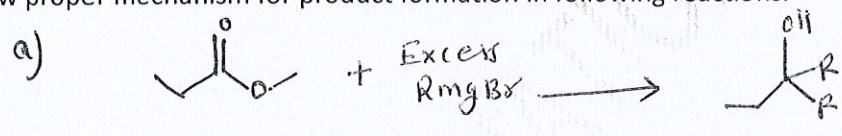 w proper mechanism for product formation in following reactions.
a)
O
O
+
Excess
RmgBr
OH
R
R